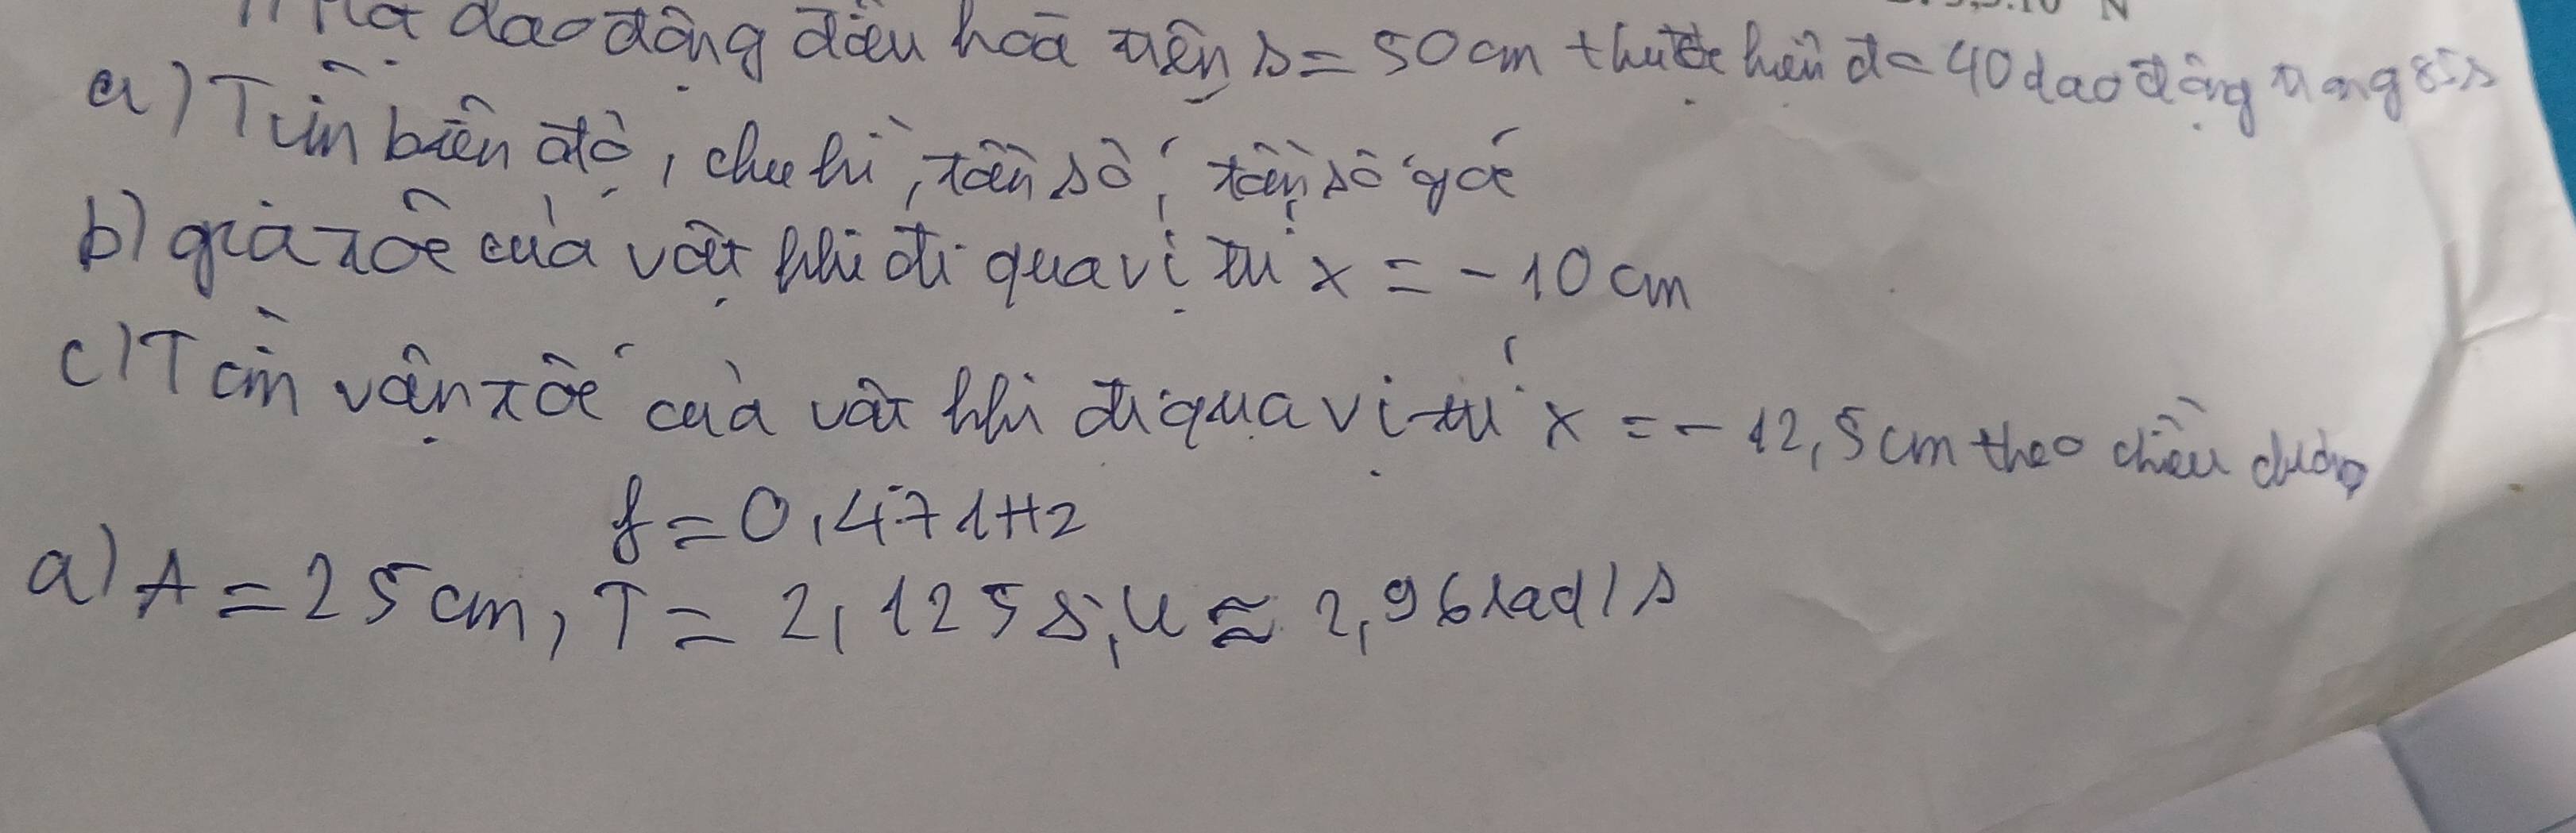 dao động điều hoà trên s = 50 cm thực hiện đ= 40 dao động trong 85s
a) Tìm biên độ, chu kì, tần số, tần số góc
b) gia tốc của vật khi đi qua vị trí x = - 10 cm
c) Tìm vận tốc của vật khi đi qua vị trí x = - 12,5cm theo chiều dương
f = 0,471Hz
a) A = 25 cm, T = 2,125 s, ω ≈ 2,96 rad/s